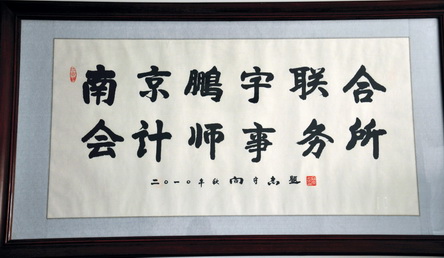 南京鹏宇联合
会计师事务所
二〇一〇年秋 向守志题